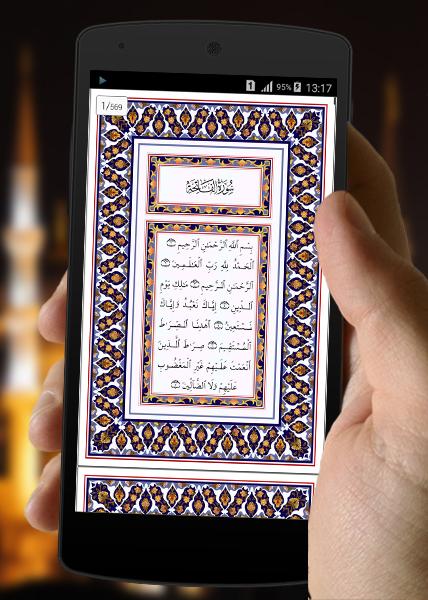 1 95% 13:17
1/569
سُورَةُ الْفَاتِحَةِ
بِسْمِ اللَّهِ الرَّحْمَٰنِ الرَّحِيمِ ۝١
الْحَمْدُ لِلَّهِ رَبِّ الْعَالَمِينَ ۝٢
الرَّحْمَٰنِ الرَّحِيمِ ۝٣ مَالِكِ يَوْمِ
الدِّينِ ۝٤ إِيَّاكَ نَعْبُدُ وَإِيَّاكَ
نَسْتَعِينُ ۝٥ اهْدِنَا الصِّرَاطَ
الْمُسْتَقِيمَ ۝٦ صِرَاطَ الَّذِينَ
أَنْعَمْتَ عَلَيْهِمْ غَيْرِ الْمَغْضُوبِ
عَلَيْهِمْ وَلَا الضَّالِّينَ ۝٧